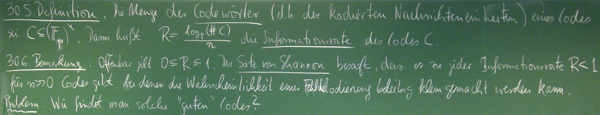 30.5 Definition. Die Menge der Codewörter (dh der kodierten Nachrichteneinheiten) eines Codes
sei C ⊆ (𝔽_p)^n. Dann heißt R = log_p(#C)/n die Informationsrate des Codes C.
30.6 Bemerkung: Offenbar gilt 0 ≤ R ≤ 1. Der Satz von Shannon besagt, dass es zu jeder Informationsrate R < 1
für n >> 0 Codes gibt, bei denen die Wahrscheinlichkeit einer Fehldecodierung beliebig klein gemacht werden kann.
Problem: Wie findet man solche "guten" Codes?